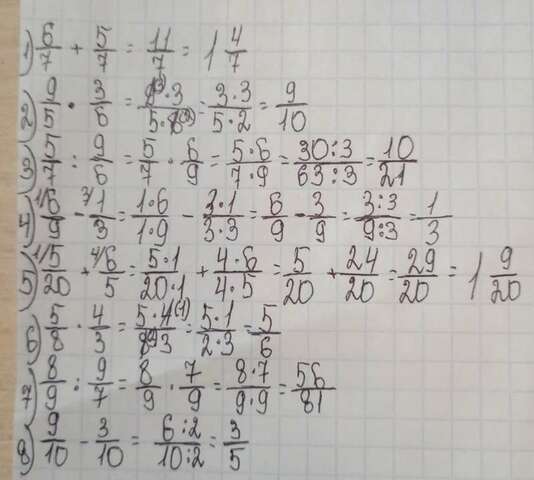 1) 6/7 + 5/7 = 11/7 = 1 4/7
2) 9/5 · 3/6 = 9·3/5·6 = 3·3/5·2 = 9/10
3) 5/7 : 9/6 = 5/7 · 6/9 = 5·6/7·9 = 30:3/63:3 = 10/21
4) 1/6/9 - 3/1/3 = 1·6/1·9 - 3·1/3·3 = 6/9 - 3/9 = 3:3/9:3 = 1/3
5) 1/5/20 + 4/6/5 = 5·1/20·1 + 4·6/4·5 = 5/20 + 24/20 = 29/20 = 1 9/20
6) 5/8 · 4/3 = 5·4(1)/8(2)·3 = 5·1/2·3 = 5/6
7) 8/9 : 9/7 = 8/9 · 7/9 = 8·7/9·9 = 56/81
8) 9/10 - 3/10 = 6:2/10:2 = 3/5